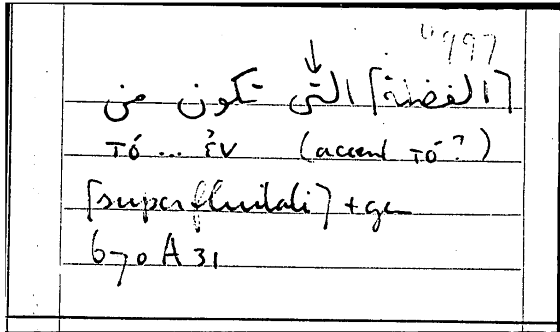 "997
[الفضلة] التي تكون من
τό ... ἐν (accent τό?)
[superfluitati] + gen
670 A 31